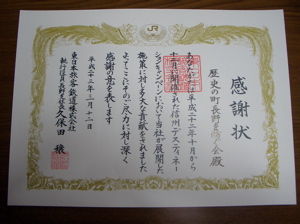 JR
感謝状
歴史の町長野を
会殿
平成二十二年十月から
十二月に開催された信州デスティネー
ションキャンペーンにおいて当社が展開した
施策に対し多大な貢献をされました
よってここにそのご尽力に対し深く
感謝の意を表します
平成二十三年三月十二日
東日本旅客鉄道株式会社
執行役員長野支社長 久保田 穣